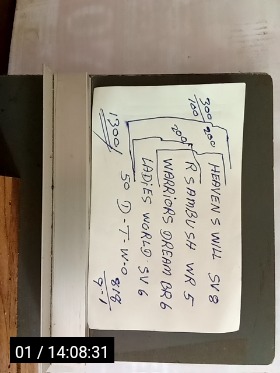 HEAVENS WILL SV 8
R SAMBUSH WR 5
WARRIORS DREAM BR 6
LADIES WORLD SV 6
50 D-T-W-0 818
9-1
300 200
100
200
1300/
01 / 14:08:31